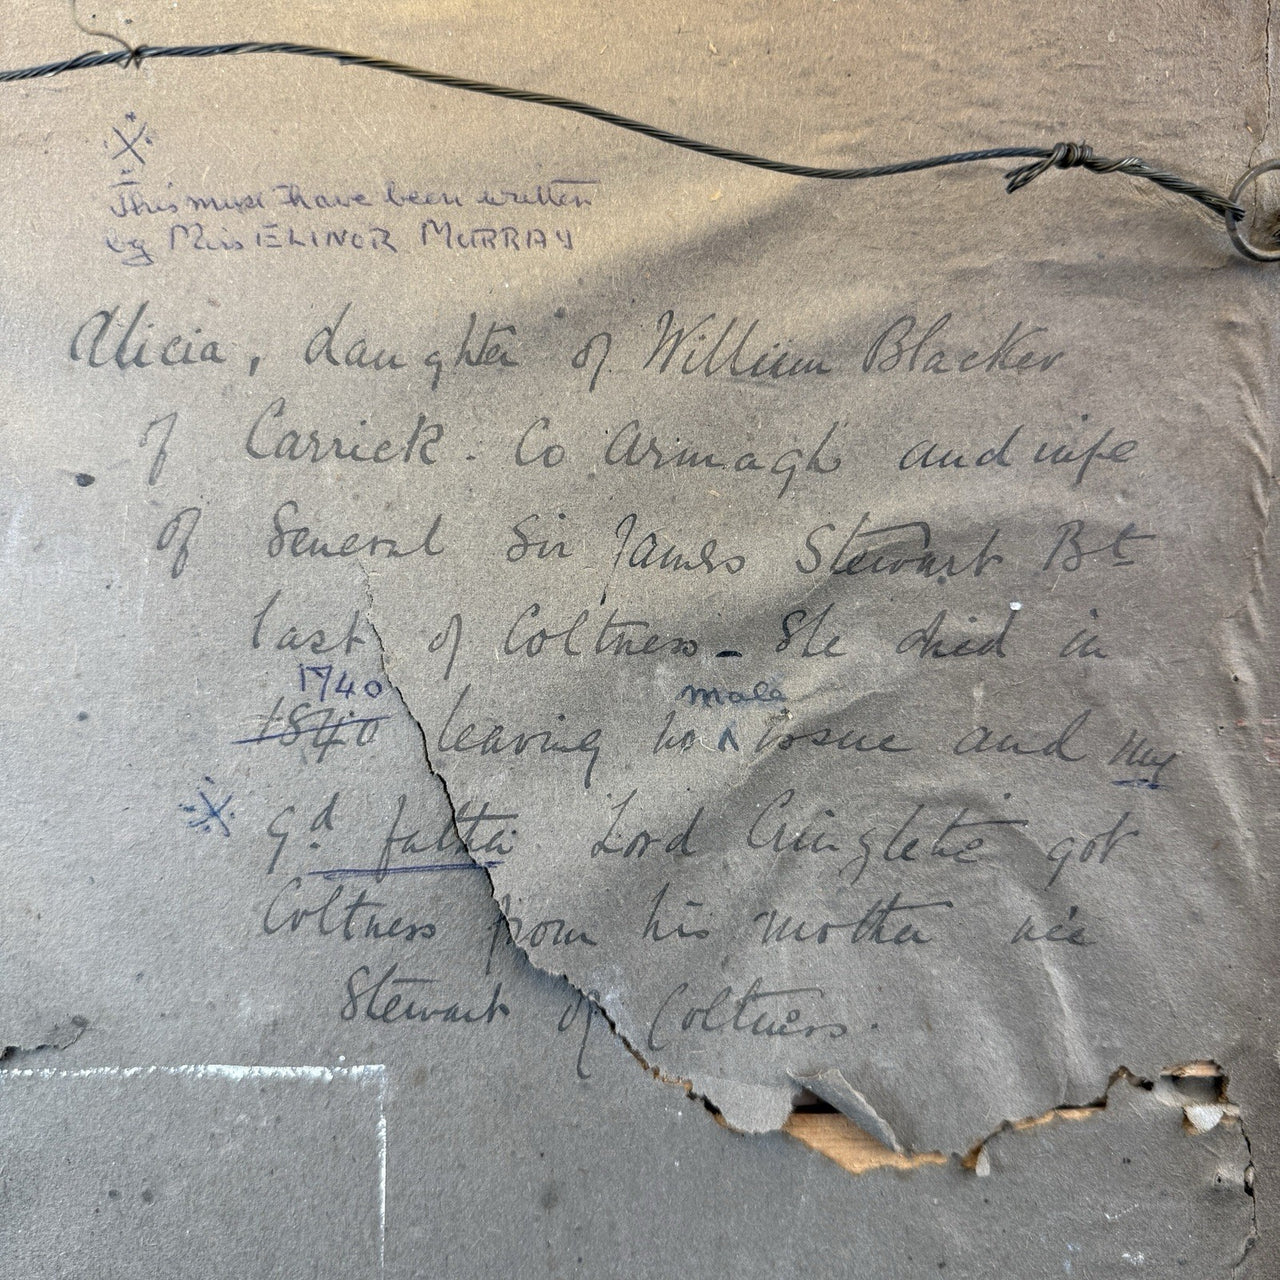 ※
This must have been written
by Miss ELINOR MURRAY
Alicia, daughter of William Blacker
of Carrick. Co Armagh and wife
of General Sir James Stewart Bt
last of Coltness - She died in
1740
male
1840 leaving no ^ issue and my
※ gd. father Lord Cringletie got
Coltness from his mother née
Stewart of Coltness.